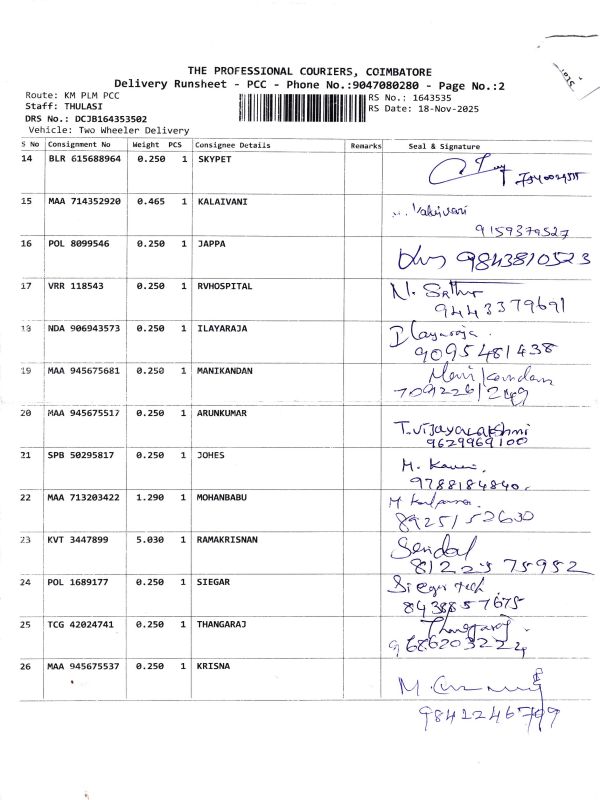 THE PROFESSIONAL COURIERS, COIMBATORE
Delivery Runsheet - PCC - Phone No.:9047080280 - Page No.:2
Route: KM PLM PCC
RS No.: 1643535
Staff: THULASI
RS Date: 18-Nov-2025
DRS No.: DCJB164353502
Vehicle: Two Wheeler Delivery
S No Consignment No Weight PCS Consignee Details Remarks Seal & Signature
14 BLR 615688964 0.250 1 SKYPET
15 MAA 714352920 0.465 1 KALAIVANI
9159379527
16 POL 8099546 0.250 1 JAPPA
9843810523
17 VRR 118543 0.250 1 RVHOSPITAL
9443379691
18 NDA 906943573 0.250 1 ILAYARAJA Ilayaraja.
9095481438
19 MAA 945675681 0.250 1 MANIKANDAN Manikandan
7092261249
20 MAA 945675517 0.250 1 ARUNKUMAR
T.Vijayalakshmi
9629969100
21 SPB 50295817 0.250 1 JOHES
9788184840.
22 MAA 713203422 1.290 1 MOHANBABU
8925152630
23 KVT 3447899 5.030 1 RAMAKRISNAN
81223 75952
24 POL 1689177 0.250 1 SIEGAR Sieger tech
8438857675
25 TCG 42024741 0.250 1 THANGARAJ Thangaraj
9686203222
26 MAA 945675537 0.250 1 KRISNA
9841246799